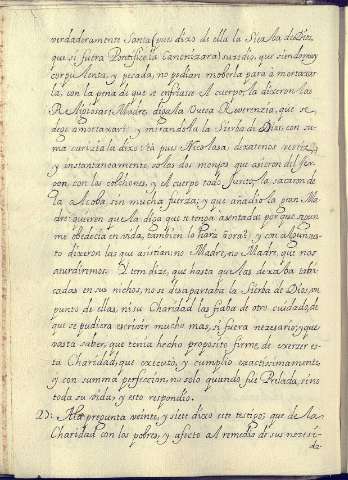 verdaderamente Santa (pues dixo de ella la Sierba de Dios,
que si fuera Pontifice, la Canonizara) susedio, que siendo muy
corpulenta, y pesada, no podian moberla para amortaxar
la, con la pena de que se enfriase el cuerpo, la dixeron las
Religiosas: Madre, diga la Vuesa Reverenzia, que se
deje amortaxar: y mirandola la Sierba de Dios con su
ma caridad la dixo: Ea pues Nicolasa, dexatenos vestir,
y instantaneamente solas dos monjas que asieron del Ser
gon con los colchones, y el cuerpo todo junto, la sacaron de
la Alcoba, sin mucha fuerza; y que añadio la gran Ma
dre: quieren que la diga que se ponga asentada, porque a quien
me obedecia en vida, tambien lo hará aora? y con
to dixeron las que asistian no Madre, no Madre, que nos
aturdiremos. Y tem dize, que hasta que las dexaba colo
cadas en sus nichos, no se disapartaba la Sierba de Dios, un
punto de ellas, ni su Charidad las fiaba de otro cuidado, de
que se pudiera escrivir mucho mas, si fuera nezesario; y que
vasta saber, que tenia hecho proposito firme, de exerzer es
ta Charidad, que executó, y cumplio exactissimamente,
y con summa perfeccion, no solo quando fue Prelada, sino
toda su vida: y esto respondio.
27: A la pregunta veinte, y siete dixo este testigo: que de la
Charidad con los pobres, y afecto al remedio de sus nezesi-
da-